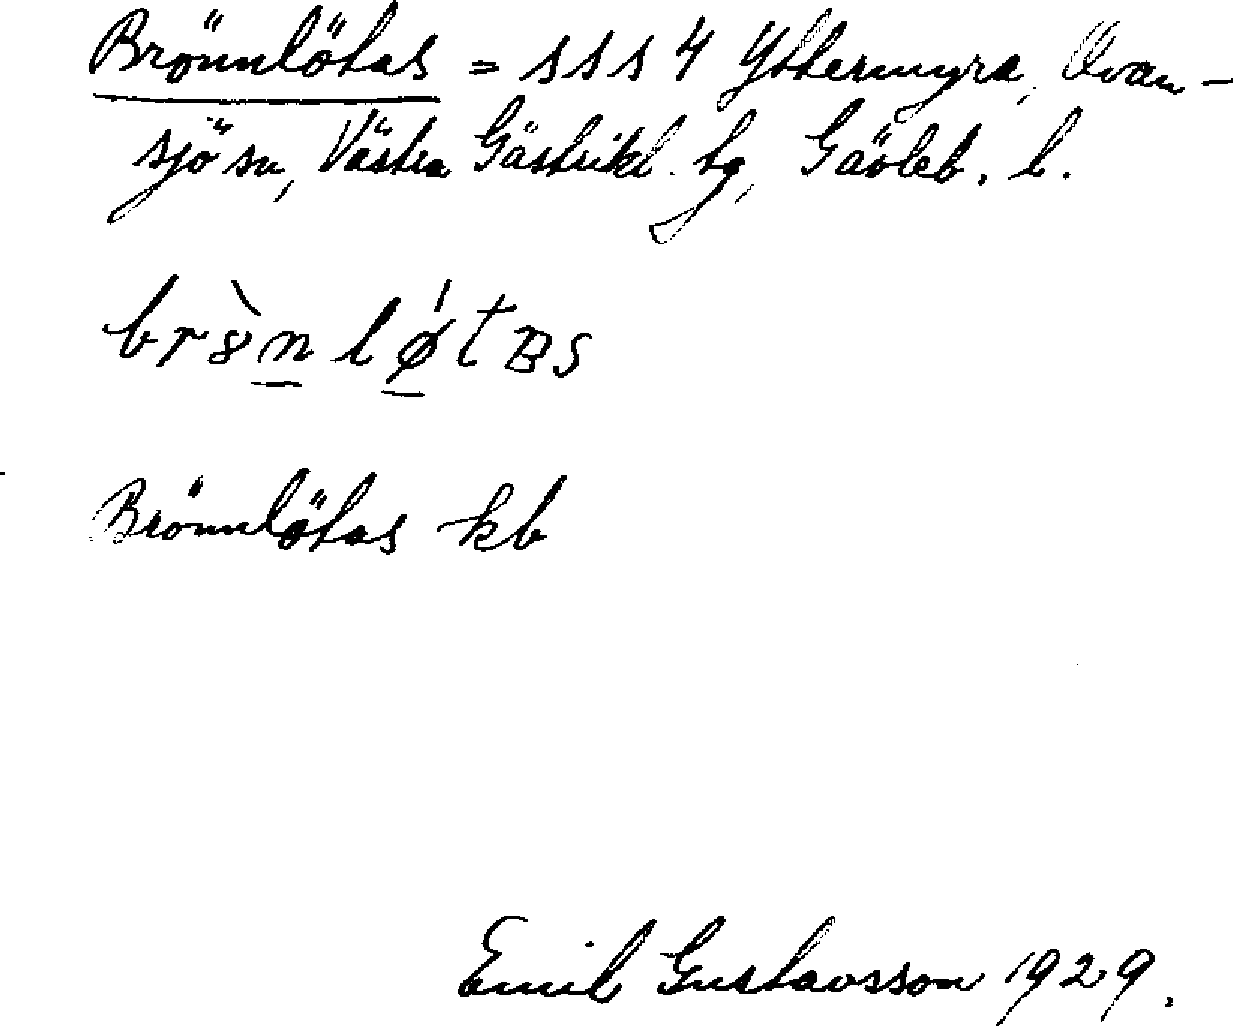 Brönnlötas = s s s 4 Yttermyra, Ovan-
sjö sn, Västra Gästrikl. tg, Gävleb. l.
brö̀n lǿtBs
Brönnlötas kb
Emil Gustavsson 1929.